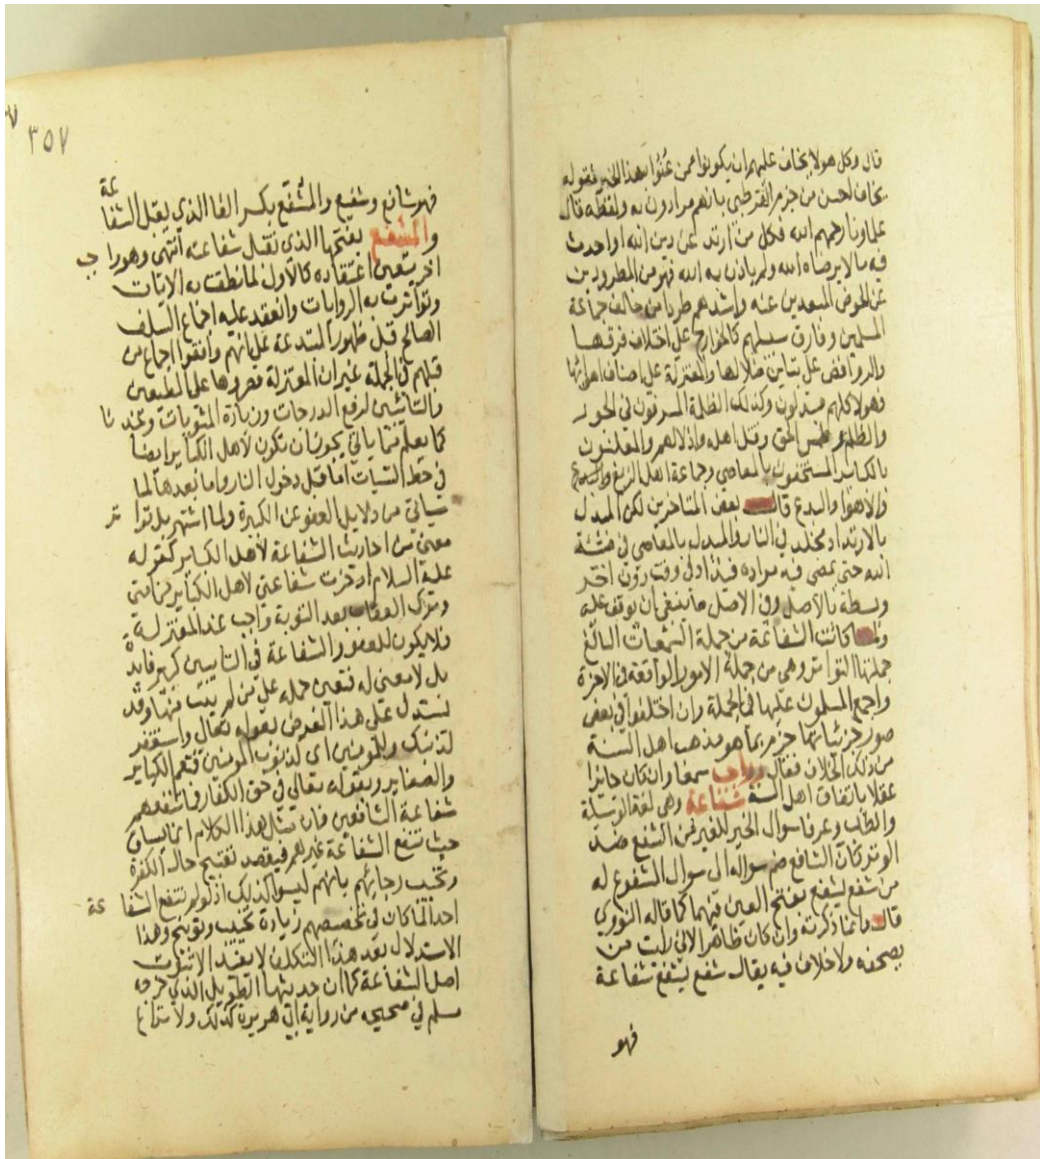 قال وكل هولا يخاف عليهم ان يكونوا ممن عُنُوا بهذا الخبر فقوله
يخاف احسن من جزم القرطبي بانهم مرادون به ولفظه قال
علماونا رحمهم الله فكل من ارتد عن دين الله او احدث
فيه ما لا يرضاه الله ولم ياذن به الله فهو من المطرودين
عن الحوض المبعدين عنه واشدهم طردا من خالف جماعة
المسلمين وفارق سبيلهم كالخوارج على اختلاف فرقها
والروافض على تباين ضلالها والمعتزلة على اصناف اهوائها
فهولا كلهم مبدلون وكذلك الظلمة المسرفون في الجور
والظلم وطمس الحق وقتل اهله واذلالهم والمعلنون
بالكباير المستخفون بالمعاصي وجماعة اهل الزيغ
والاهوا والبدع قال بعض المتاخرين لكن المبدل
بالارتداد مخلد في النار والمبدل بالمعاصي في مشئة
الله حتى يمضي فيه مراده
وبسطه بالاصل وفي الاصل ما ينبغي ان يوقف عليه
ولما كانت الشفاعة من جملة السمعيات البالغ
جملتها التواتر وهي من جملة الامور الواقعة في الاخرة
واجمع المسلمون عليها في الجملة وان اختلفوا في بعض
صور جزئياتها جزم بما هو مذهب اهل السنة
من ذلك الخلاف فقال وواجب سمعا وان كان جائزا
عقلا باتفاق اهل السنة شفاعة وهي لغة الوسيلة
والطلب وعرفا سوال الخير للغير من الشفع ضد
الوتر كان الشافع ضم سواله الى سوال المشفوع له
من شفع يشفع بفتح العين فيهما كما قاله النووي
قال وانما ذكرته وان كان ظاهرا لاني رايت من
يصحفه ولا خلاف فيه يقال شفع يشفع شفاعة
فهو
٣٥٧
فهو شافع وشفيع والمُشَفِّع بكسر الفا الذي يقبل الشفاعة
والمشفع بفتحها الذي تقبل شفاعته انتهى وهو واجب
اخر يتعين اعتقاده كالاول لما نطقت به الايات
وتواترت به الروايات وانعقد عليه اجماع السلف
الصالح قبل ظهور المبتدعة على انهم وافقوا اجماع من
قبلهم في الجملة غير ان المعتزلة قصروها على المطيعين
والتائبين لرفع الدرجات وزيادة المثوبات وعندنا
كما يعلم مما ياتي يجوز ان تكون لاهل الكباير ايضا
في حط السيات اما قبل دخول النار واما بعدها لما
سياتي من دلايل العفو عن الكبيرة ولما اشتهر بل تواتر
معنى من احاديث الشفاعة لاهل الكباير كقوله
عليه السلام ادخرت شفاعتي لاهل الكباير من امتي
وترك العقاب بعد التوبة واجب عند المعتزلة
فلا يكون للعفو والشفاعة في التايبين كبير فايدة
بل لا معنى له فتعين حمله على من لم يتب منها وقد
نستدل على هذا الغرض بقوله تعالى واستغفر
لذنبك وللمومنين اي لذنوب المومنين فتعم الكباير
والصغاير وبقوله تعالى في حق الكفار فما تنفعهم
شفاعة الشافعين فان مثل هذا الكلام انما يساق
حيث تنفع الشفاعة غيرهم فيقصد تقبيح حال الكفرة
وتخييب رجائهم بانهم ليسوا كذلك اذ لو لم تنفع الشفاعة
احدا لما كان في تخصيصهم زيادة تخييب وتوبيخ وهذا
الاستدلال بعد هذا التكلف لا يفيد الا ثبوت
اصل الشفاعة كما ان حديثها الطويل الذي خرجه
مسلم في صحيحه من رواية ابي هريرة كذلك ولا نزاع